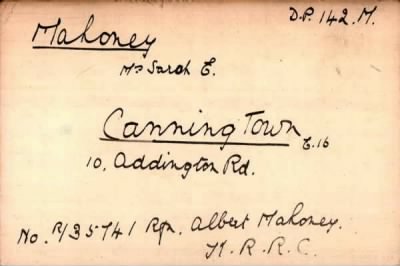 D.P. 142. M.
Mahoney
Mrs Sarah E.
Canning Town E.16
10, Addington Rd.
No. R/35741 Rfn. Albert Mahoney.
K. R. R. C.